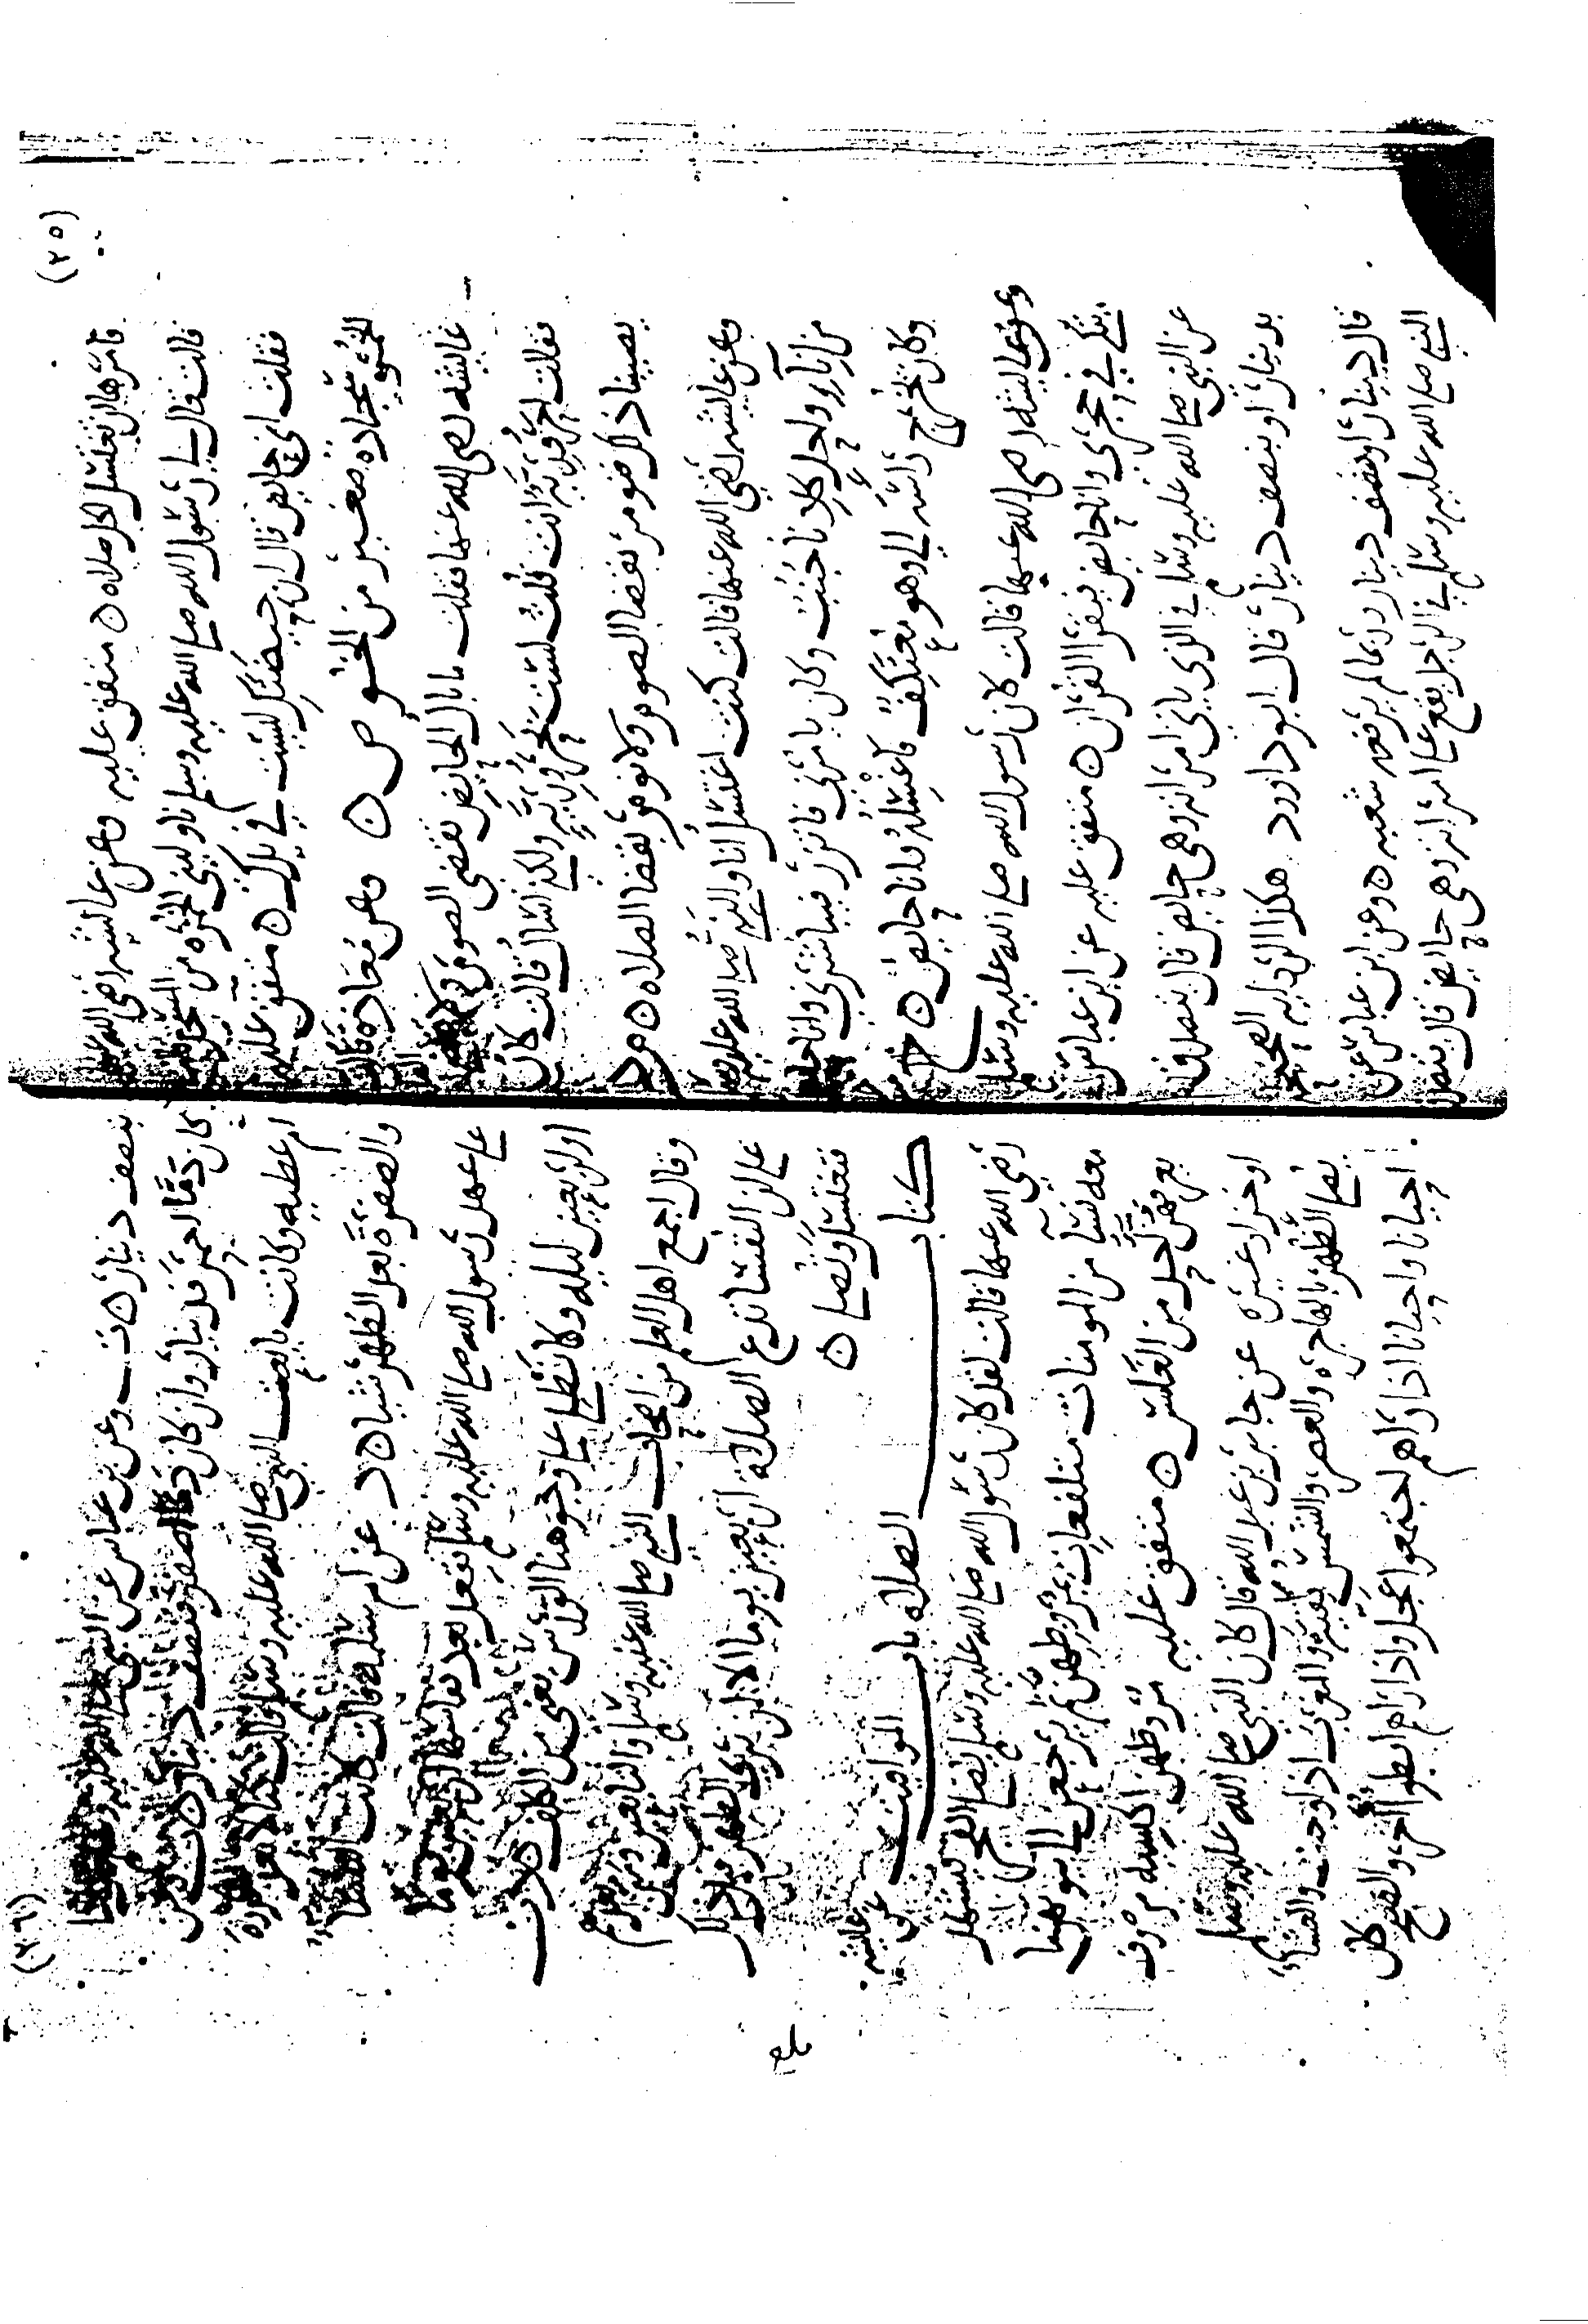 (٢٥)
فأمرها ان تغتسل لكل صلاه ه متفق عليه وعن عايشه رضي الله عنها
قالت قال لي رسول الله صلى الله عليه وسلم ناوليني الخمره من المسجد
فقلت اني حايض قال ان حيضتك ليست في يدك ه متفق عليه
الخمرة سجادة صغيرة من الخوص ه وعن معاذة قالت
عايشه رضي الله عنها فقلت ما بال الحايض تقضي الصوم ولا
فقالت احرورية انت قلت لست بحرورية ولكني اسأل قالت كان
يصيبنا ذلك فنومر بقضا الصوم ولا نومر بقضا الصلاه ه
وعن عايشه رضي الله عنها قالت كنت اغتسل انا والنبي صلى الله عليه وسلم
من اناء واحد كلانا جنب وكان يامرني فاتزر فيباشرني وانا حايض
وكان يخرج راسه الي وهو معتكف فاغسله وانا حايض ه
وعن عايشه رضي الله عنها قالت كان رسول الله صلى الله عليه وسلم
يتكي في حجري وانا حايض فيقرا القرآن ه متفق عليه عن ابن عباس
عن النبي صلى الله عليه وسلم في الذي ياتي امراته وهي حايض قال يتصدق
بدينار او بنصف دينار قال ابو داود هكذا الروايه الصحيحه
قال دينار او نصف دينار وربما لم يرفعه شعبه ه وعن ابن عباس عن
النبي صلى الله عليه وسلم في الرجل يقع على امراته وهي حايض قال يتصدق
(٢٦)
بنصف دينار ه ت وعن بن عباس عن النبي صلى الله عليه وسلم
كان دما احمر فدينار وان كان دما اصفر فنصف دينار ه ت عن
ام عطيه وكانت بايعت النبي صلى الله عليه وسلم قالت كنا لا نعد الكدرة
والصفرة بعد الطهر شيا ه د عن ام سلمة قالت كانت النفسا
على عهد رسول الله صلى الله عليه وسلم تقعد بعد نفاسها اربعين يوما
او اربعين ليله وكنا نطلي على وجوهنا الورس يعني من الكلف
وقال اجمع اهل العلم من اصحاب النبي صلى الله عليه وسلم والتابعين ومن بعدهم
على ان النفسا تدع الصلاة اربعين يوما الا ان ترى الطهر قبل ذلك
فتغتسل وتصلي ه
كتاب الصلاه باب المواقيت عن عايشه
رضي الله عنها قالت لقد كان رسول الله صلى الله عليه وسلم يصلي الفجر فيشهد
معه نسا من المومنات متلفعات بمروطهن ثم يرجعن الى بيوتهن ما
يعرفهن احد من الغلس ه متفق عليه مروطهن اكسيه من صوف
او خز او غيره عن جابر بن عبد الله قال كان النبي صلى الله عليه وسلم
يصلي الظهر بالهاجره والعصر والشمس نقية والمغرب اذا وجبت والعشاء
احيانا واحيانا اذا راهم اجتمعوا عجل واذا راهم ابطوا اخر والصبح كان